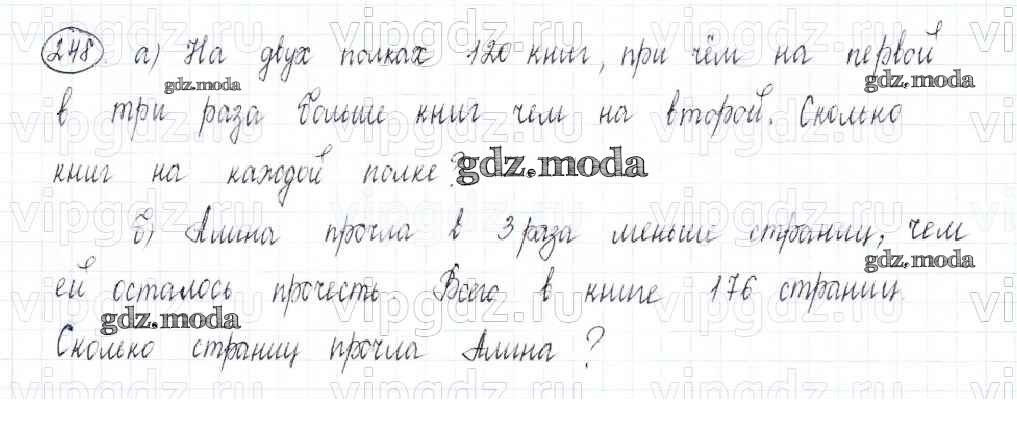 248 а) На двух полках 120 книг, при чём на первой
в три раза больше книг чем на второй. Сколько
книг на каждой полке?
б) Алина прочла в 3 раза меньше страниц, чем
ей осталось прочесть. Всего в книге 176 страниц.
Сколько страниц прочла Алина?
gdz.moda
gdz.moda
gdz.moda
gdz.moda
gdz.moda
vipgdz.ru